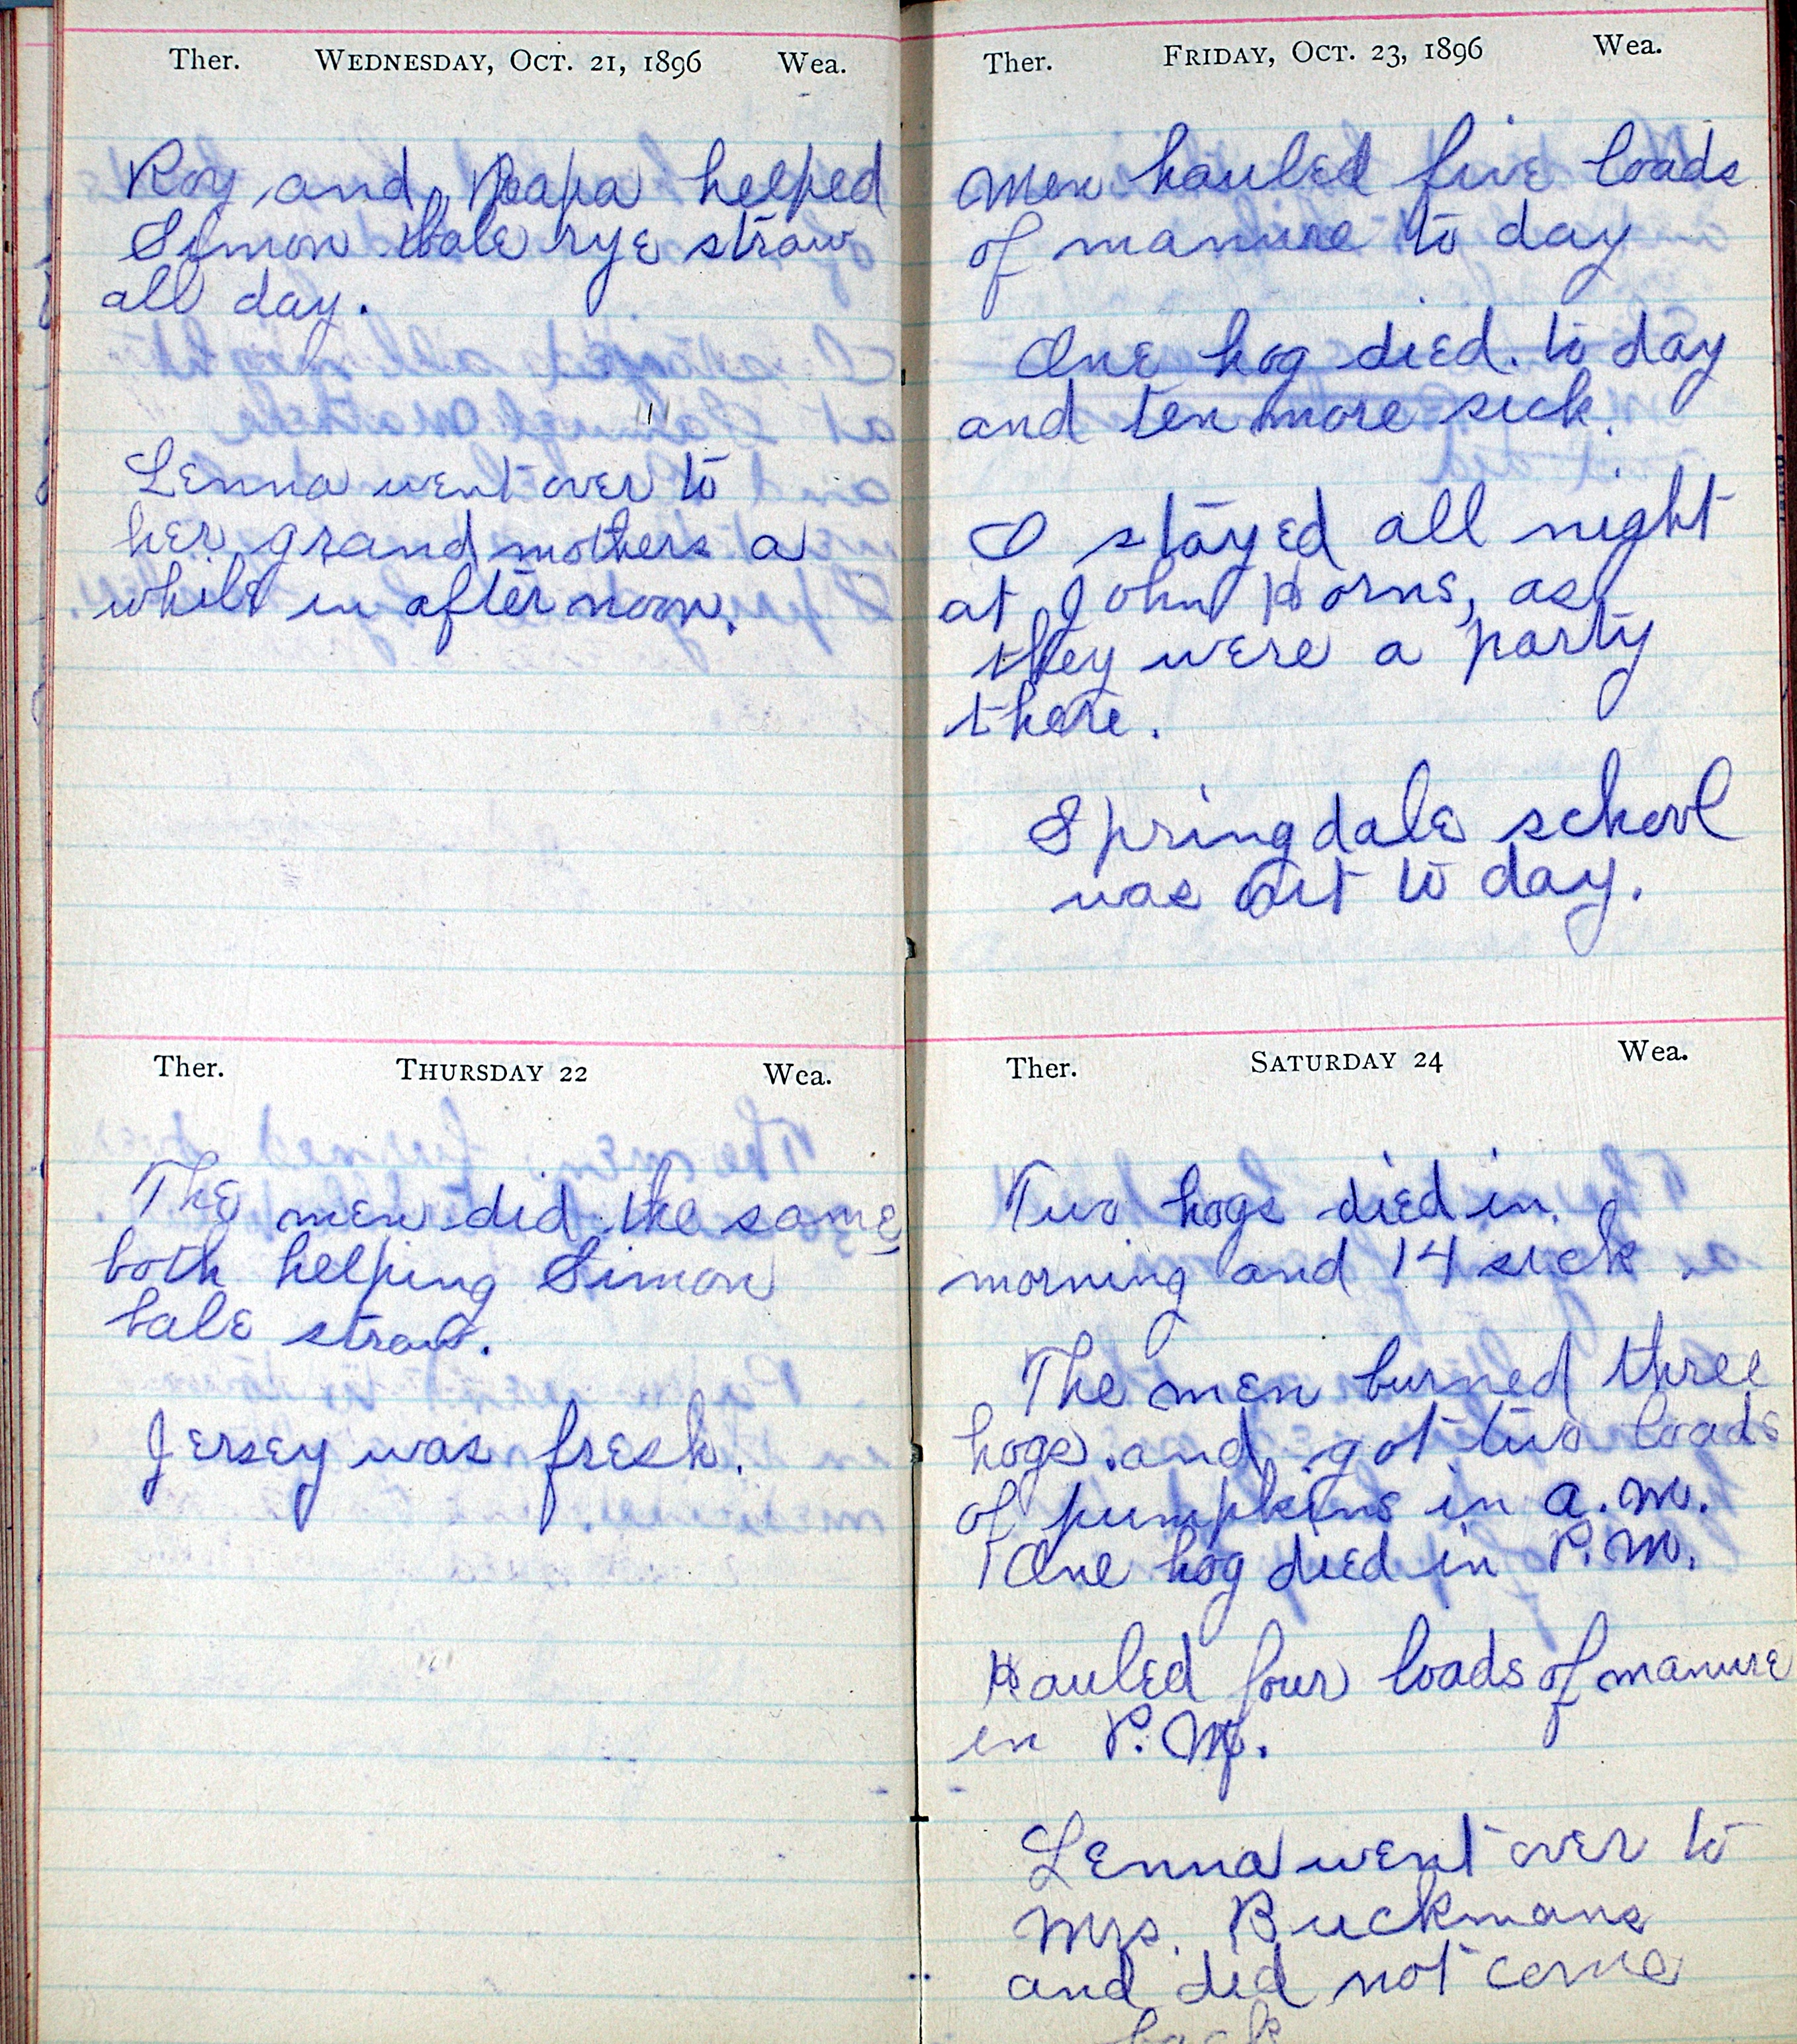 Ther. WEDNESDAY, OCT. 21, 1896 Wea.
Roy and Papa helped
Simon bale rye straw
all day.
Lenna went over to
her grand mothers a
while in afternoon.
Ther. THURSDAY 22 Wea.
The men did the same
both helping Simon
bale straw.
Jersey was fresh.
Ther. FRIDAY, OCT. 23, 1896 Wea.
Men hauled five loads
of manure to day
One hog died. to day
and ten more sick.
I stayed all night
at John Horns, as
they were a party
there.
Springdale school
was out to day.
Ther. SATURDAY 24 Wea.
Two hogs died in
morning and 14 sick
The men burned three
hogs. and got two loads
of pumpkins in a.m.
One hog died in P.M.
Hauled four loads of manure
in P.M.
Lenna went over to
Mrs. Buckmans
and did not come
back